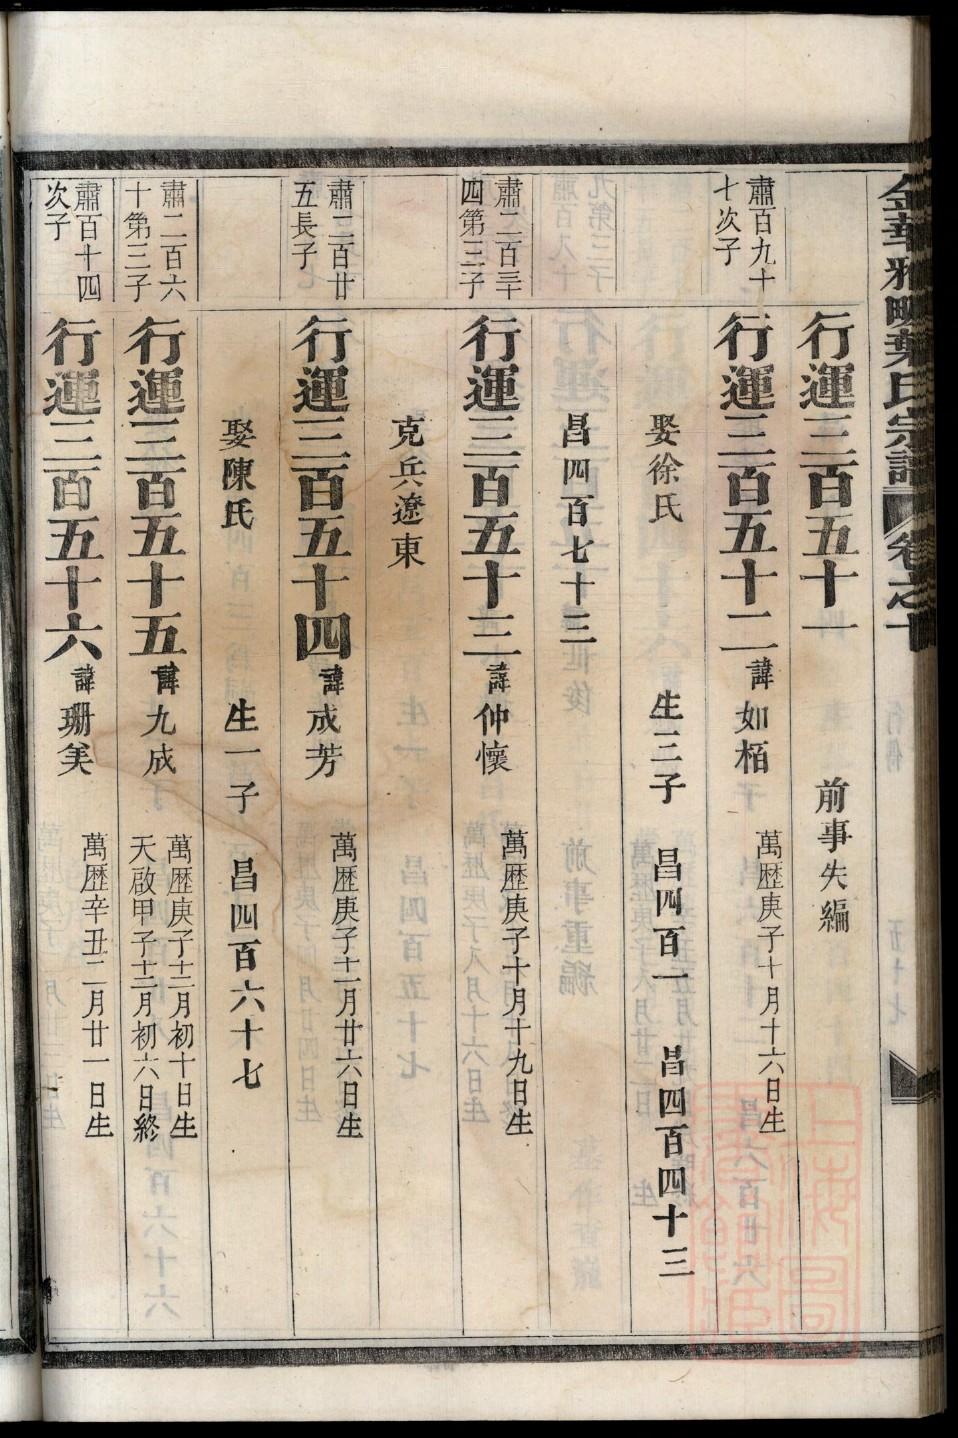 金華雅畈葉氏宗譜
卷之十
行運三百五十一
前事失編
肅百九十
七次子
行運三百五十二
諱如栢
萬歷庚子十月十六日生
娶徐氏
生三子
昌四百一
昌四百四十三
昌四百七十三
肅二百三十
四第三子
行運三百五十三
諱仲懷
萬歷庚子十月十九日生
克兵遼東
肅二百廿
五長子
行運三百五十四
諱成芳
萬歷庚子十一月廿六日生
娶陳氏
生一子
昌四百六十七
肅二百六
十第三子
行運三百五十五
諱九成
萬歷庚子十二月初十日生
天啟甲子十二月初六日終
肅百十四
次子
行運三百五十六
諱珊美
萬歷辛丑二月廿一日生